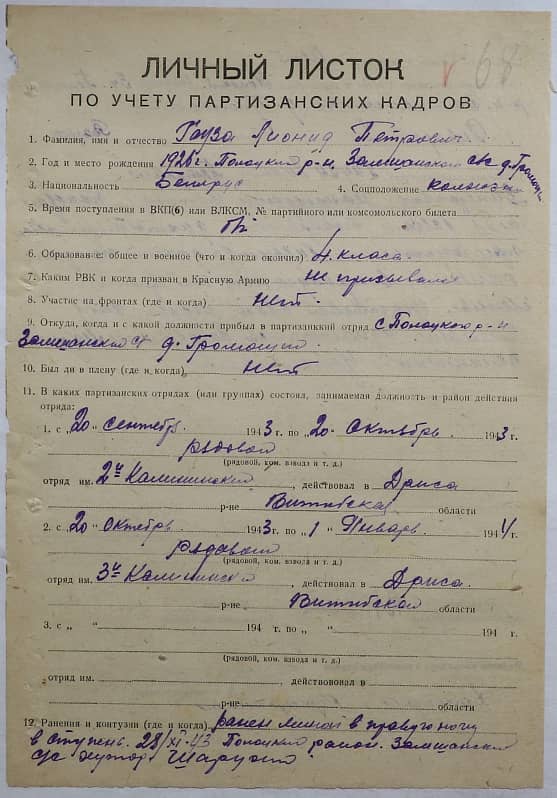 68
ЛИЧНЫЙ ЛИСТОК
ПО УЧЕТУ ПАРТИЗАНСКИХ КАДРОВ
1. Фамилия, имя и отчество Гауза Лионид Петрович
2. Год и место рождения 1926 г. Полоцкий р-н. Замшанского с/с д. Громощи
3. Национальность Беларус 4. Соцположение
5. Время поступления в ВКП(б) или ВЛКСМ, № партийного или комсомольского билета
б/п
6. Образование: общее и военное (что и когда окончил) 4. класа.
7. Каким РВК и когда призван в Красную Армию не призывался
8. Участие на фронтах (где и когда) нет.
9. Откуда, когда и с какой должности прибыл в партизанский отряд с Полоцкого р-н
Замшанский с/с д. Громощи
10. Был ли в плену (где и когда) нет
11. В каких партизанских отрядах (или группах) состоял, занимаемая должность и район действия
отряда:
1. с „20" сентябрь 1943 г. по „20" октябрь 1943 г.
рядовой
(рядовой, ком. взвода и т. д.)
отряд им. 2й Калининский, действовал в Дриса
р-не Витибская области
2. с „20" октябрь 1943 г. по „1" Январь 1944 г.
рядавой
(рядовой, ком. взвода и т. д.)
отряд им. 3й Калининский, действовал в Дриса.
р-не Витибской области
3. с „ " 194 г. по „ " 194 г.
(рядовой, ком. взвода и т. д.)
отряд им. , действововал в
р-не области
12. Ранения и контузии (где и когда) ранен миной в правую ногу
в ступень. 28/XI-43 Полоцкий район. Замшанский
с/с хутор